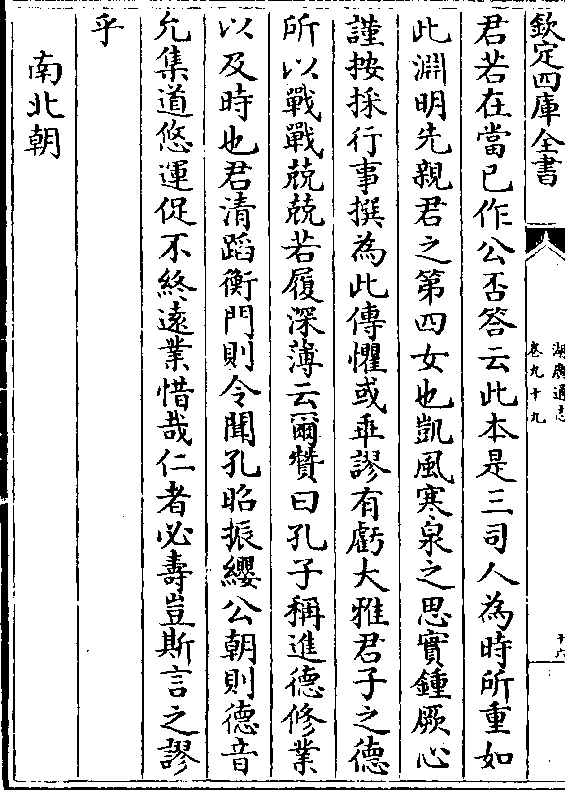 欽定四庫全書
湖廣通志
卷九十九
君若在當已作公否答云此本是三司人為時所重如
此淵明先親君之第四女也凱風寒泉之思實鍾厥心
謹按採行事撰為此傳懼或乖謬有虧大雅君子之德
所以戰戰兢兢若履深薄云爾贊曰孔子稱進德修業
以及時也君清蹈衡門則令聞孔昭振纓公朝則德音
允集道悠運促不終遠業惜哉仁者必壽豈斯言之謬
乎
南北朝